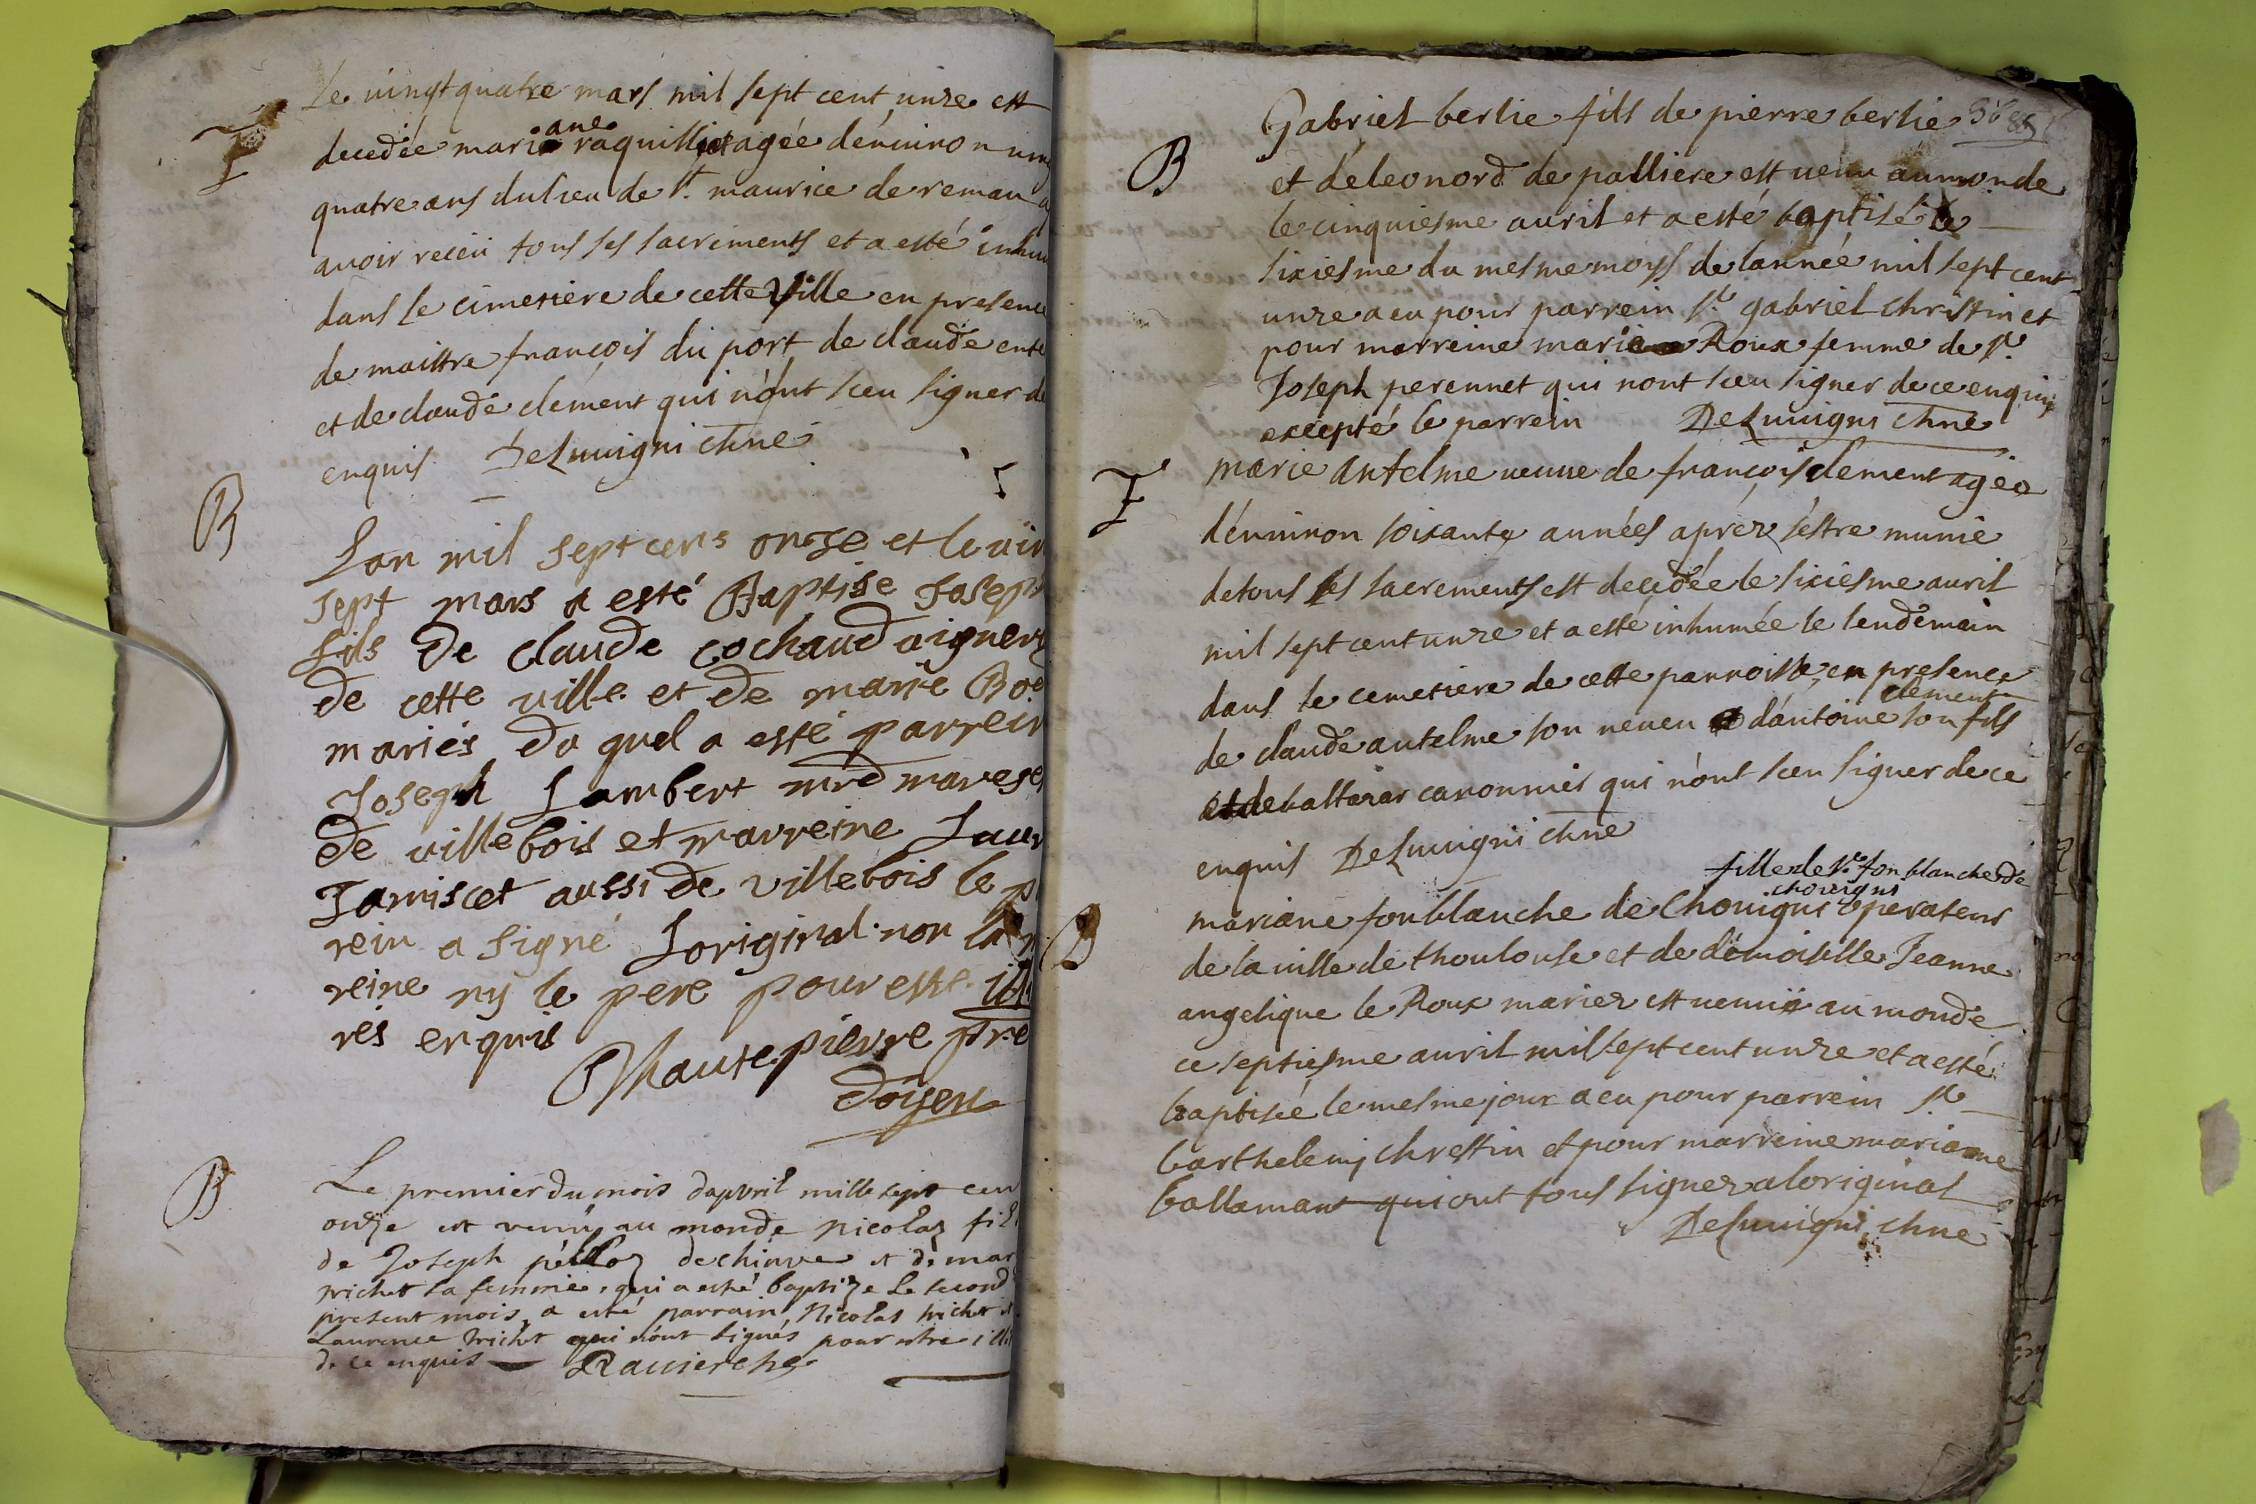 Le vingt quatre mars mil sept cent unze est
decedée mariane raquilliet agée d'environ
quatre ans du lieu de St. maurice de reman
avoir receu tous ses sacrements et a esté
dans le cimetiere de cette Ville en presence
de maistre françois du port de claude
et de claude clement qui n'ont sceu signer
enquis Deluuigni chne
B
Lan mil sept cens onze et le
sept mars a esté Baptise Joseph
fils De claude cochaud
De cette ville et De marie
mariés Du quel a esté parrein
Joseph Lambert mrd
De villebois et marreine
Jamiscet aussi De villebois le
rein a signé Loriginal non la
reine ny le pere pour estre
rés enquis
hautepierre ptre
Doyen
B
Le premier du mois d'apvril mille sept cen
onze est venu au monde nicolas
de Joseph de chinve et de mar
trichet sa femme, qui a esté baptize Le second
present mois, a esté parrain Nicolas trichet
Laurence trichet qui n'ont signés pour estre
de ce enquis Ravier
Gabriel berlie fils de pierre berlie
B et d'eleonord de palliere est venu au monde
le cinquiesme avril et a esté baptisé le
sixiesme du mesme moys de l'année mil sept cent
unze a eu pour parrein Sr gabriel christin et
pour marreine marie Roux femme de Sr
Joseph perennet qui n'ont sceu signer de ce enquis
excepté le parrein Deluuigni chne
marie antelme veuve de françois clement agée
d'environ soixante années aprez s'estre munie
de tous ses sacrements est decedée le sixiesme avril
mil sept cent unze et a esté inhumée le lendemain
dans le cemetiere de cette parroisse, en presence
clement
de claude antelme son neveu d'antoine son fils
et de baltazar caronnier qui n'ont sceu signer de ce
enquis Deluuigni chne
fille de Sr fonblanche de
chovigni
mariane fonblanche de Chovigni operateur
de la ville de thoulouse et de demoiselle Jeanne
angelique le Roux mariez est venuë au monde
ce septiesme avril mil sept cent unze et a esté
baptisée le mesme jour a eu pour parrein Sr
barthelemy chrestin et pour marreine marianne
ballamant qui ont tous signez a loriginal
Deluuigni chne